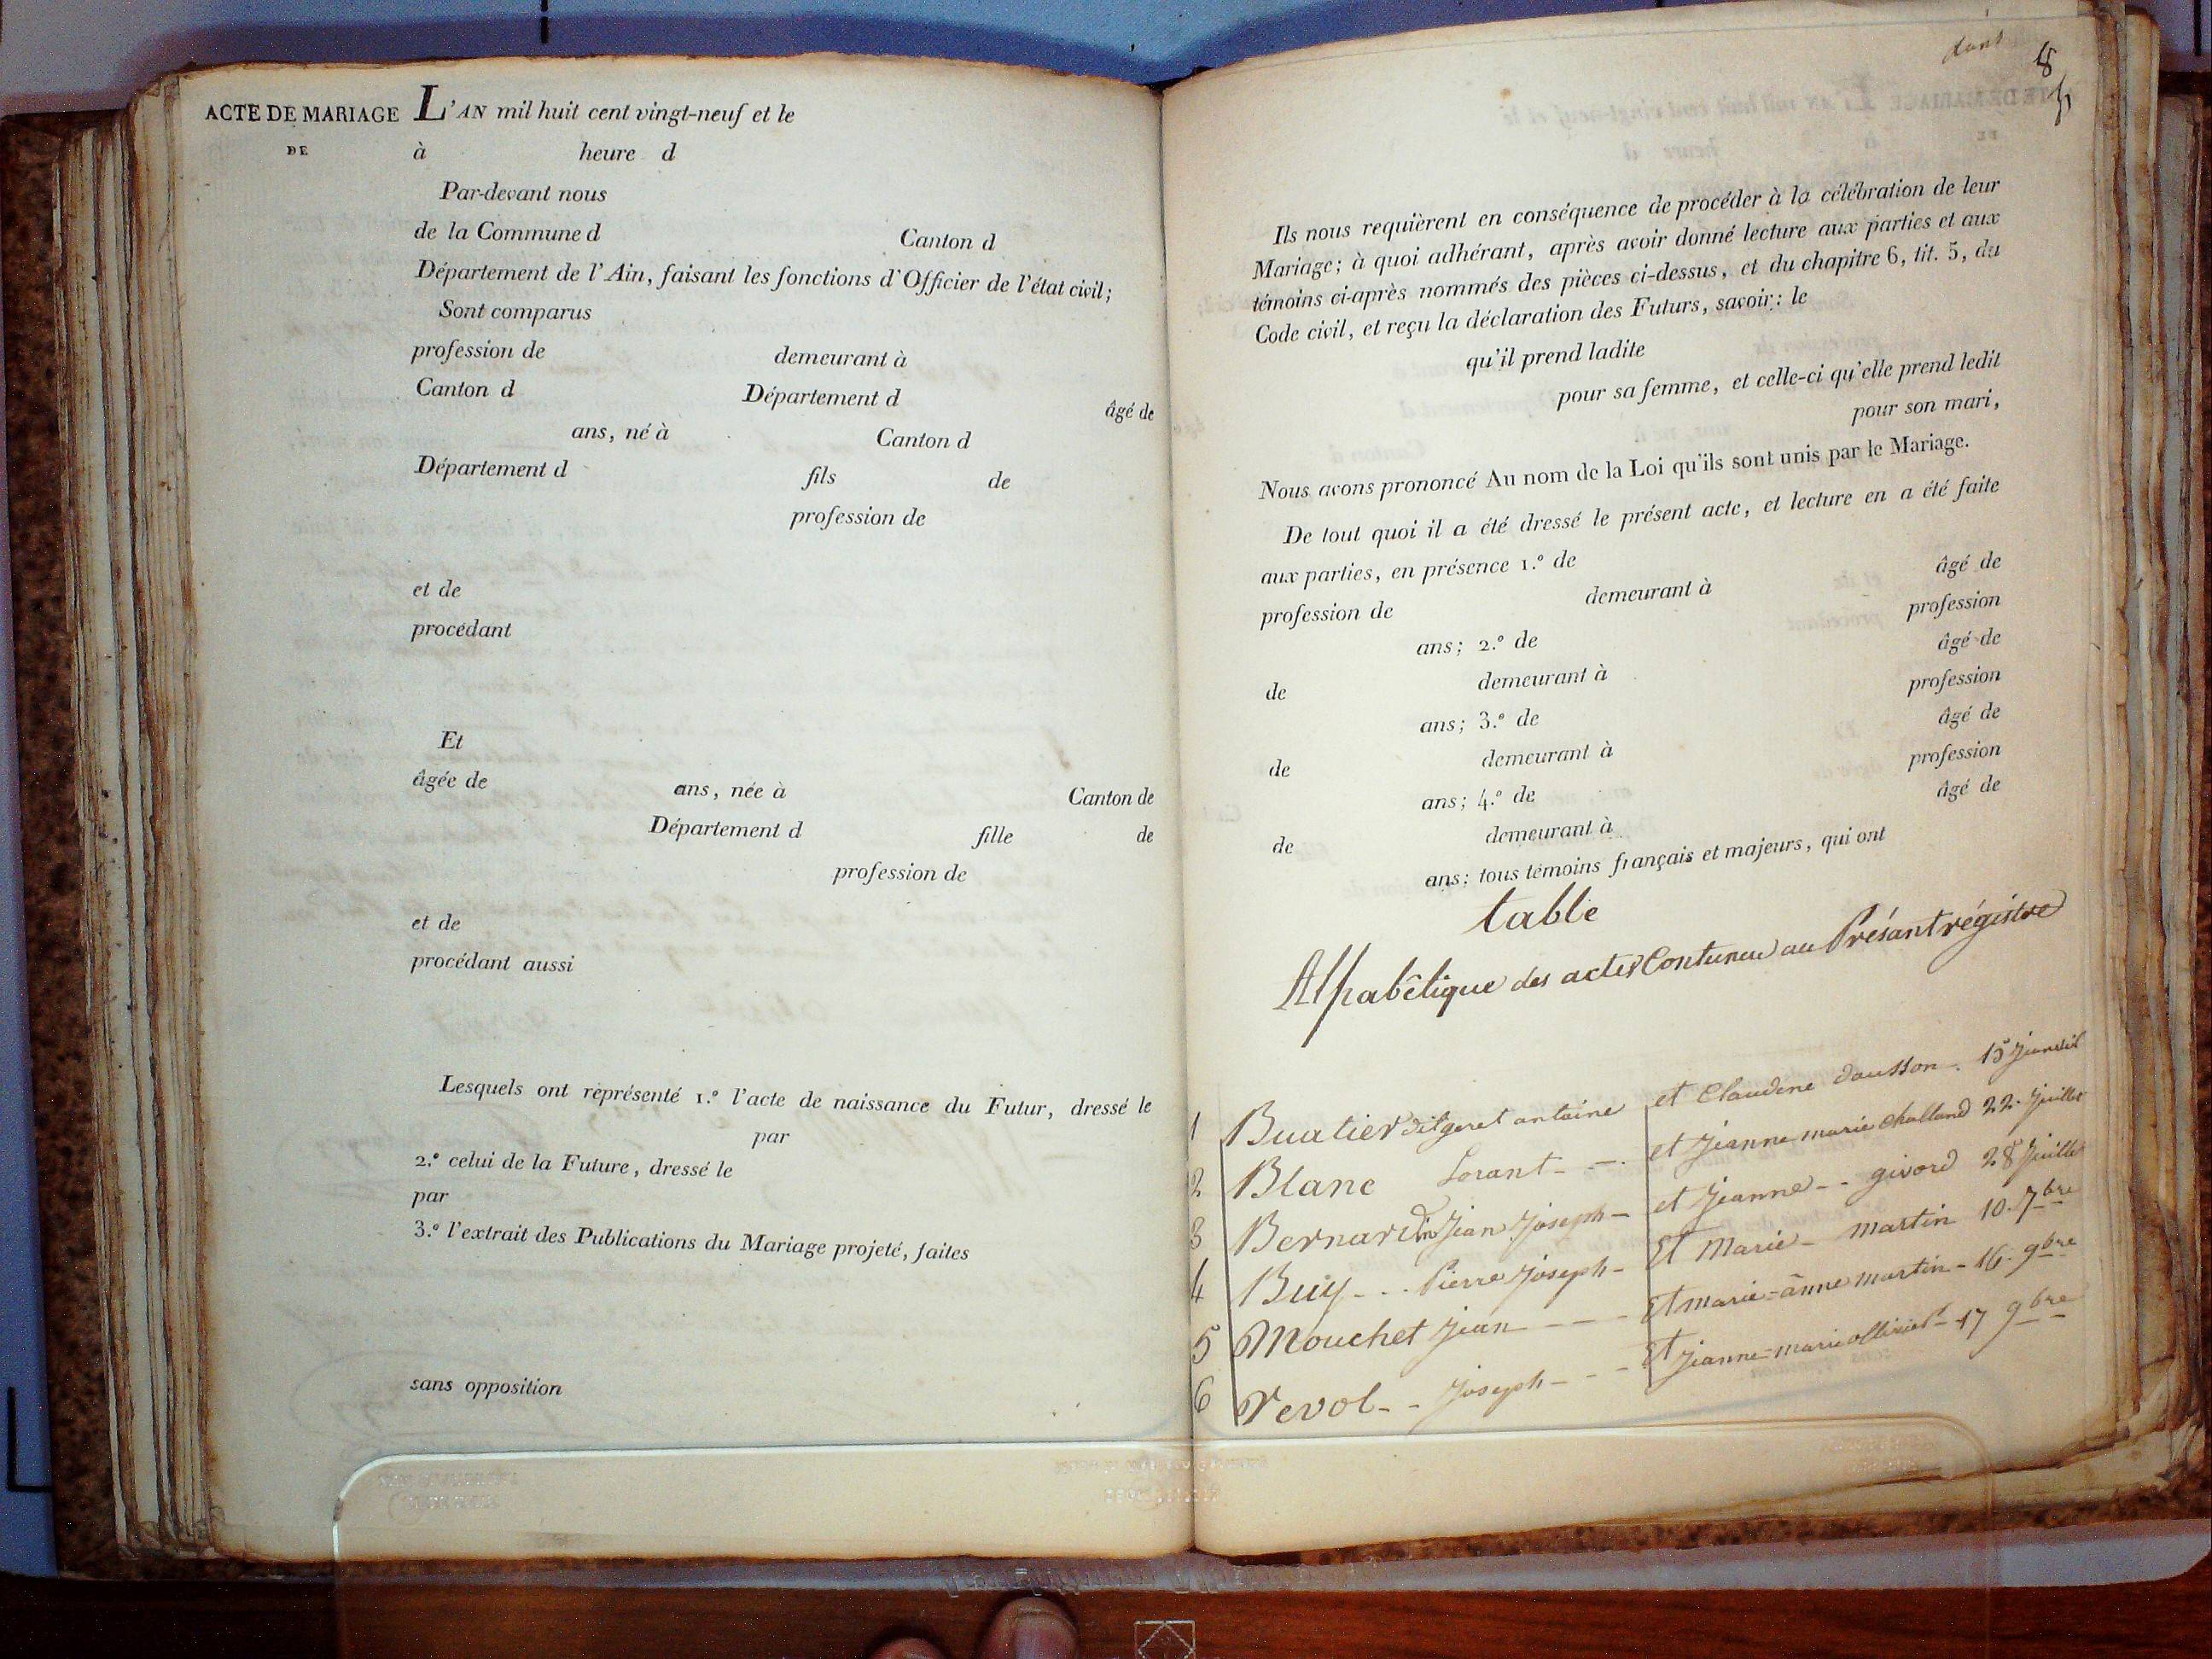 ACTE DE MARIAGE
DE
L'AN mil huit cent vingt-neuf et le
à heure d
Par-devant nous
de la Commune d Canton d
Département de l'Ain, faisant les fonctions d'Officier de l'état civil;
Sont comparus
profession de demeurant à
Canton d Département d âgé de
ans, né à Canton d
Département d fils de
profession de
et de
procédant
Et
âgée de ans, née à Canton de
Département d fille de
profession de
et de
procédant aussi
Lesquels ont représenté 1.º l'acte de naissance du Futur, dressé le
par
2.º celui de la Future, dressé le
par
3.º l'extrait des Publications du Mariage projeté, faites
sans opposition
8
Ils nous requièrent en conséquence de procéder à la célébration de leur
Mariage; à quoi adhérant, après avoir donné lecture aux parties et aux
témoins ci-après nommés des pièces ci-dessus, et du chapitre 6, tit. 5, du
Code civil, et reçu la déclaration des Futurs, savoir: le
qu'il prend ladite
pour sa femme, et celle-ci qu'elle prend ledit
pour son mari,
Nous avons prononcé Au nom de la Loi qu'ils sont unis par le Mariage.
De tout quoi il a été dressé le présent acte, et lecture en a été faite
aux parties, en présence 1.º de
profession de demeurant à âgé de
ans; 2.º de profession
de demeurant à âgé de
ans; 3.º de profession
de demeurant à âgé de
ans; 4.º de profession
de demeurant à âgé de
ans; tous témoins français et majeurs, qui ont
table
Alphabêtique des actes Contenu au Présant régistre
1 Buatier dit geret antoine et Claudine 15
2 Blanc Lorant - -. et Jeanne marie Challand 22. Juillet
3 Bernardin Jean Joseph - et Jeanne - - givord 28 Juillet
4 Buy - . . Pierre Joseph - Et Marie - martin 10. 7bre
5 Mouchet Jean - - - Et marie=anne martin - 16. 9bre
6 revol - - Joseph - - - Et Jeanne=marie 17 9bre